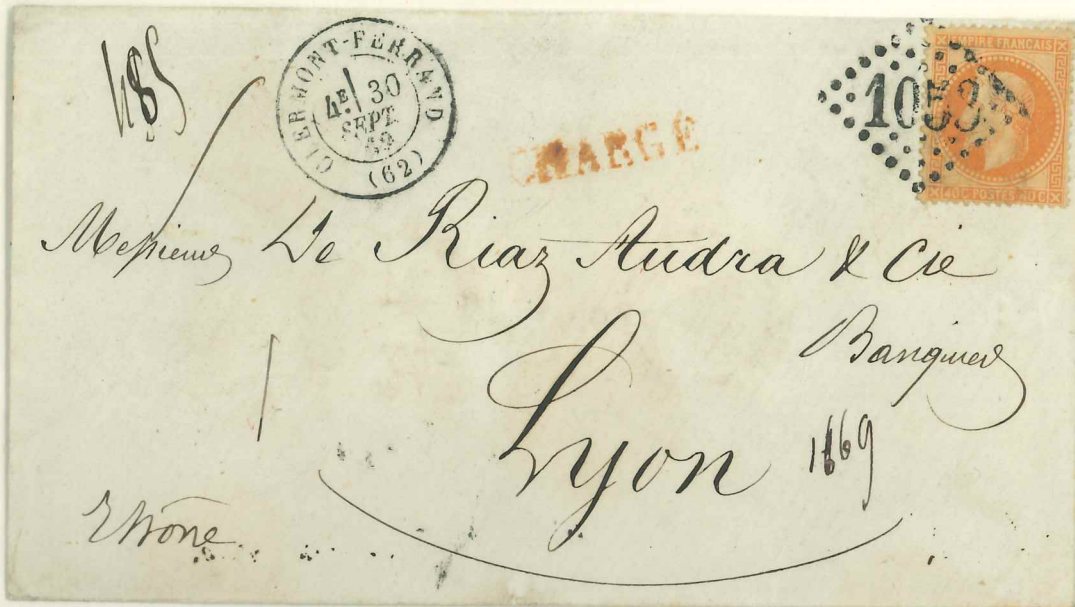 485
CLERMONT-FERRAND
4E 30
SEPT.
69
(62)
CHARGÉ
1053
EMPIRE FRANÇAIS
40 C POSTES 40 C
Messieurs De Riaz Audra & Cie
Banquiers
Lyon
1869
Rhône